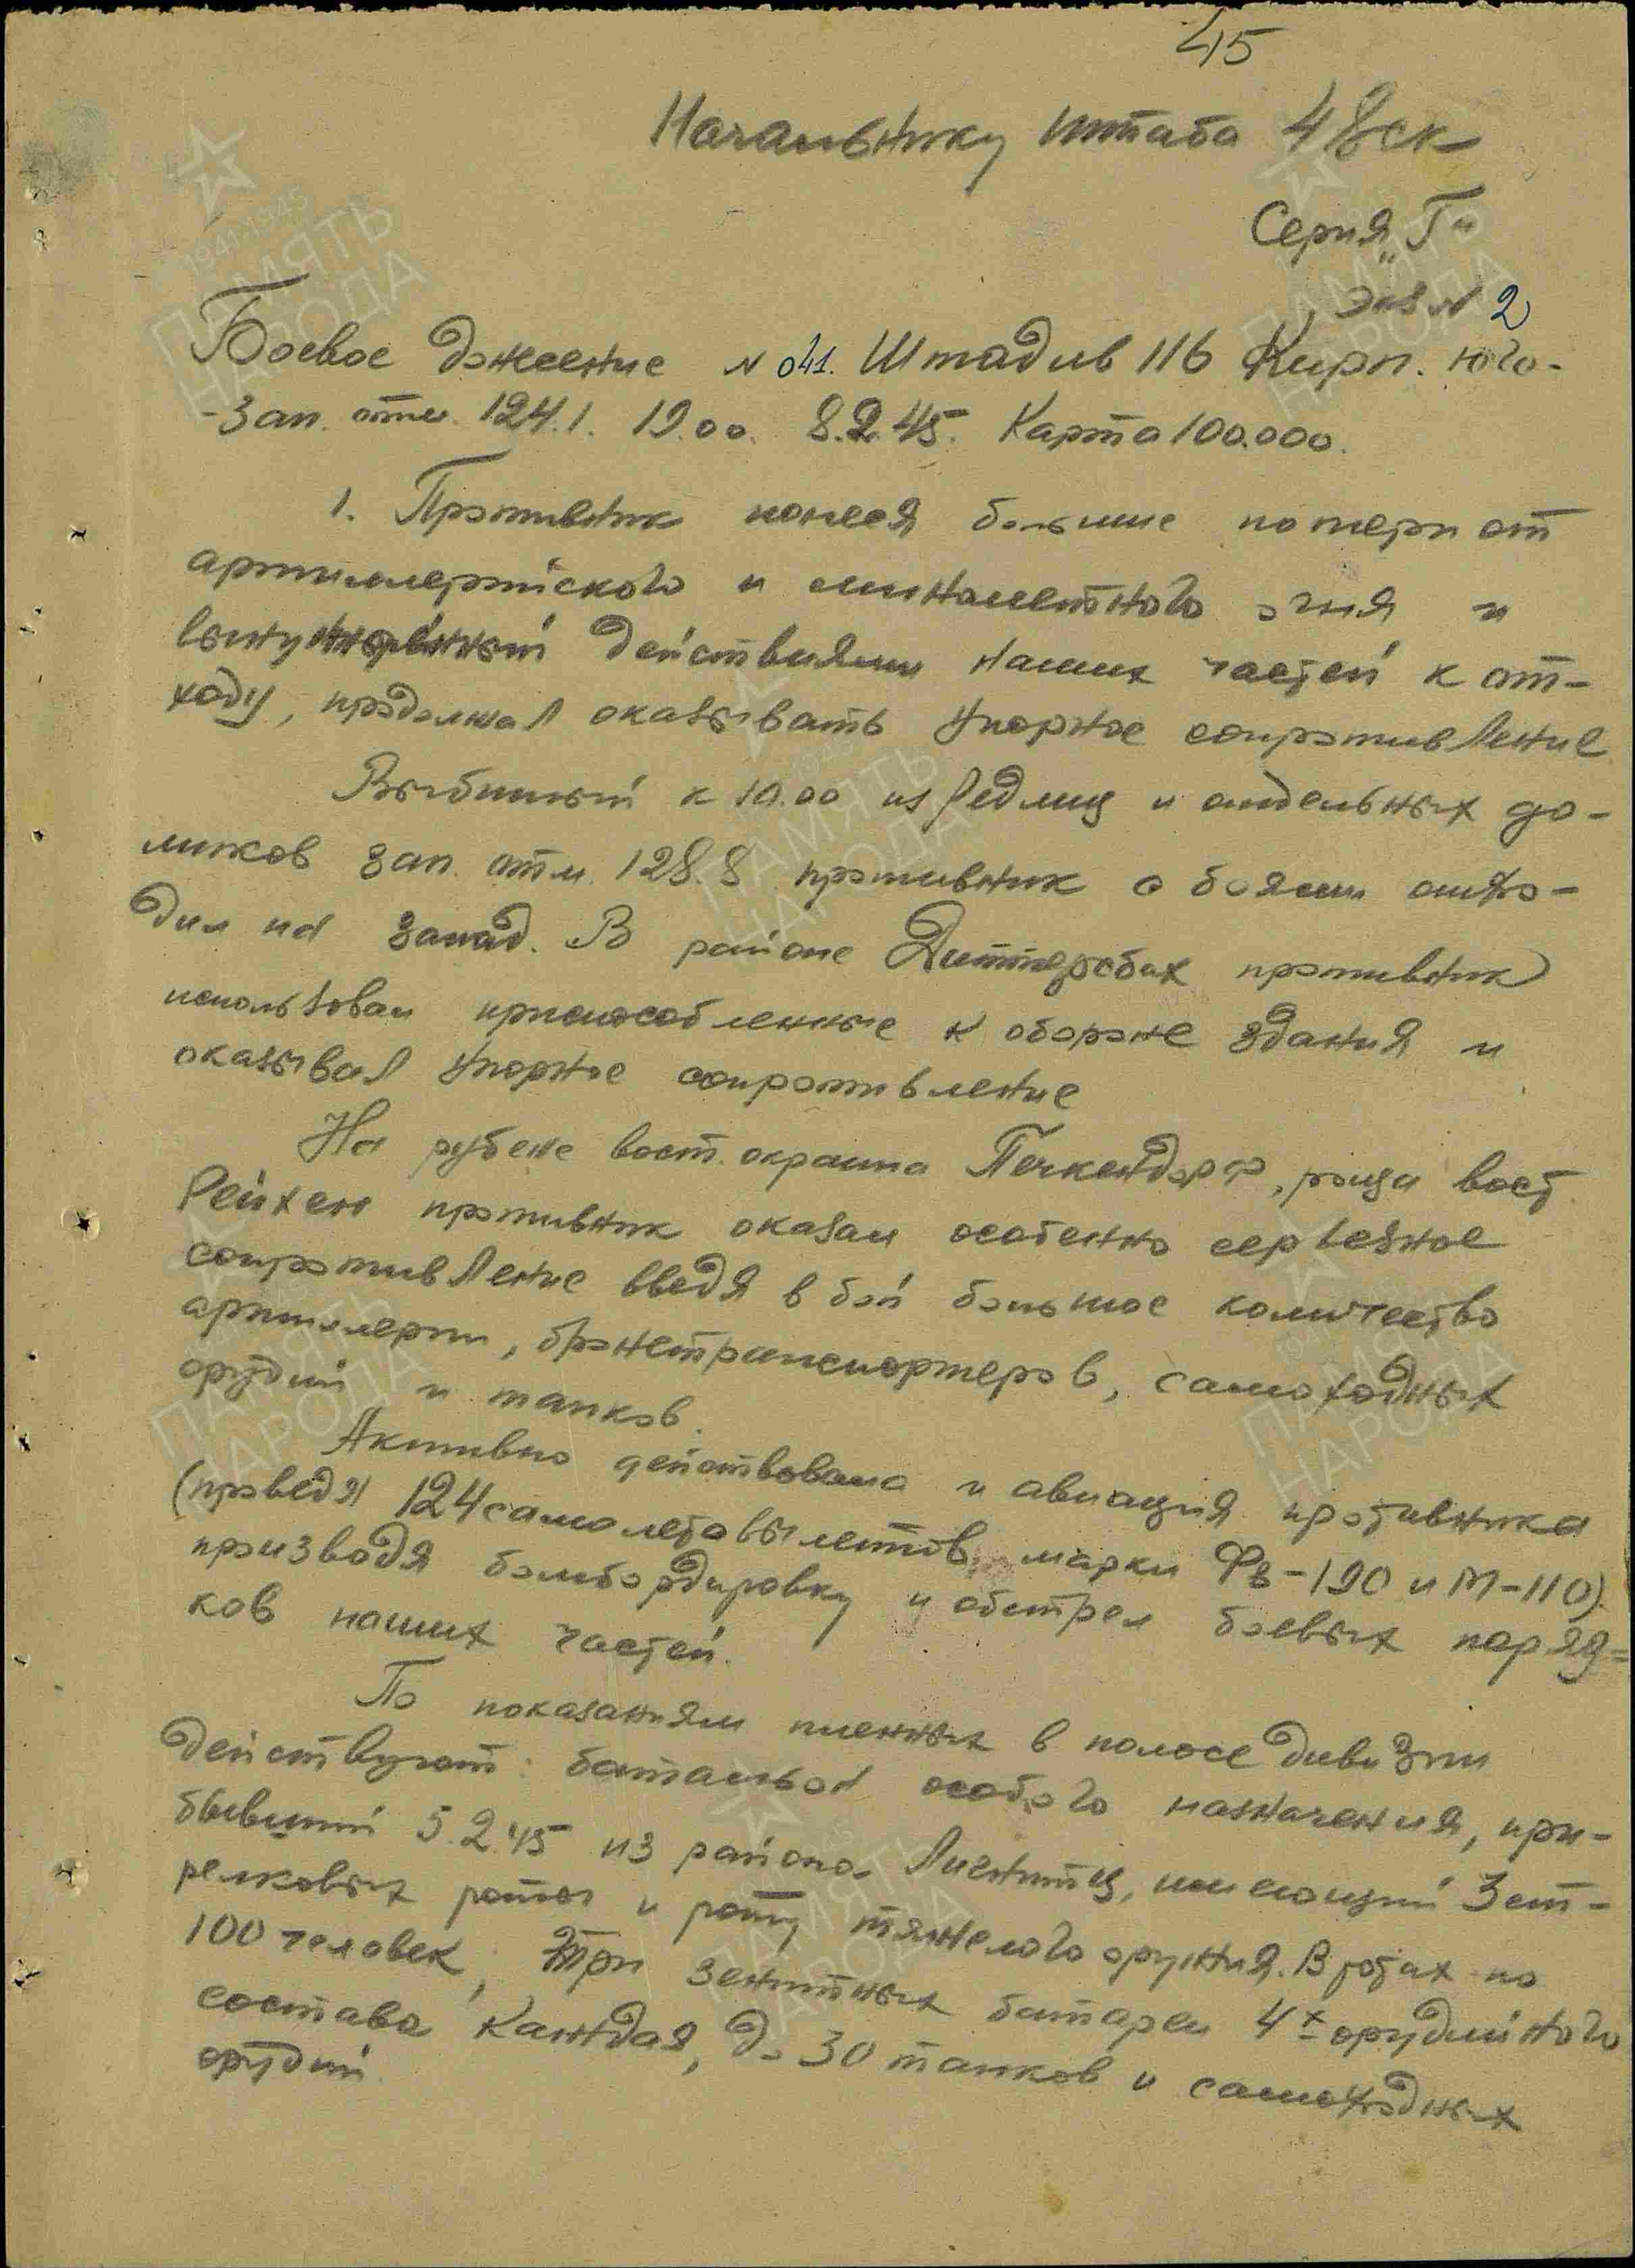 45
Начальнику штаба 48ск
Серия „Г"
экз № 2
Боевое донесение № 041. Штадив 116 Кирп. юго-
-зап. отм. 124.1. 19.00. 8.2.45. Карта 100.000.
1. Противник понеся большие потери от
артиллерийского и минометного огня и
вынужденный действиями наших частей к от-
ходу, продолжал оказывать упорное сопротивление
Выбитый к 10.00 из Редлиц и отдельных до-
миков зап. отм. 128.8 противник с боями отхо-
дил на запад. В районе Диттерсбах противник
использовал приспособленные к обороне здания и
оказывал упорное сопротивление
На рубеже вост. окраина Печкендорф, роща вост.
Рейхен противник оказал особенно серьезное
сопротивление введя в бой большое количество
артиллерии, бронетранспортеров, самоходных
орудий и танков.
Активно действовала и авиация противника
(проведя 124 самолетовылетов, марки Фв-190 и М-110).
производя бомбардировку и обстрел боевых поряд-
ков наших частей.
По показаниям пленных в полосе дивизии
действуют: батальон особого назначения, при-
бывший 5.2.45 из района Лигнитц, имеющий 3 ст-
релковых роты и роту тяжелого оружия. В ротах по
100 человек, три зенитных батареи 4х орудийного
состава каждая, до 30 танков и самоходных
орудий.
ПАМЯТЬ
НАРОДА
1941-1945